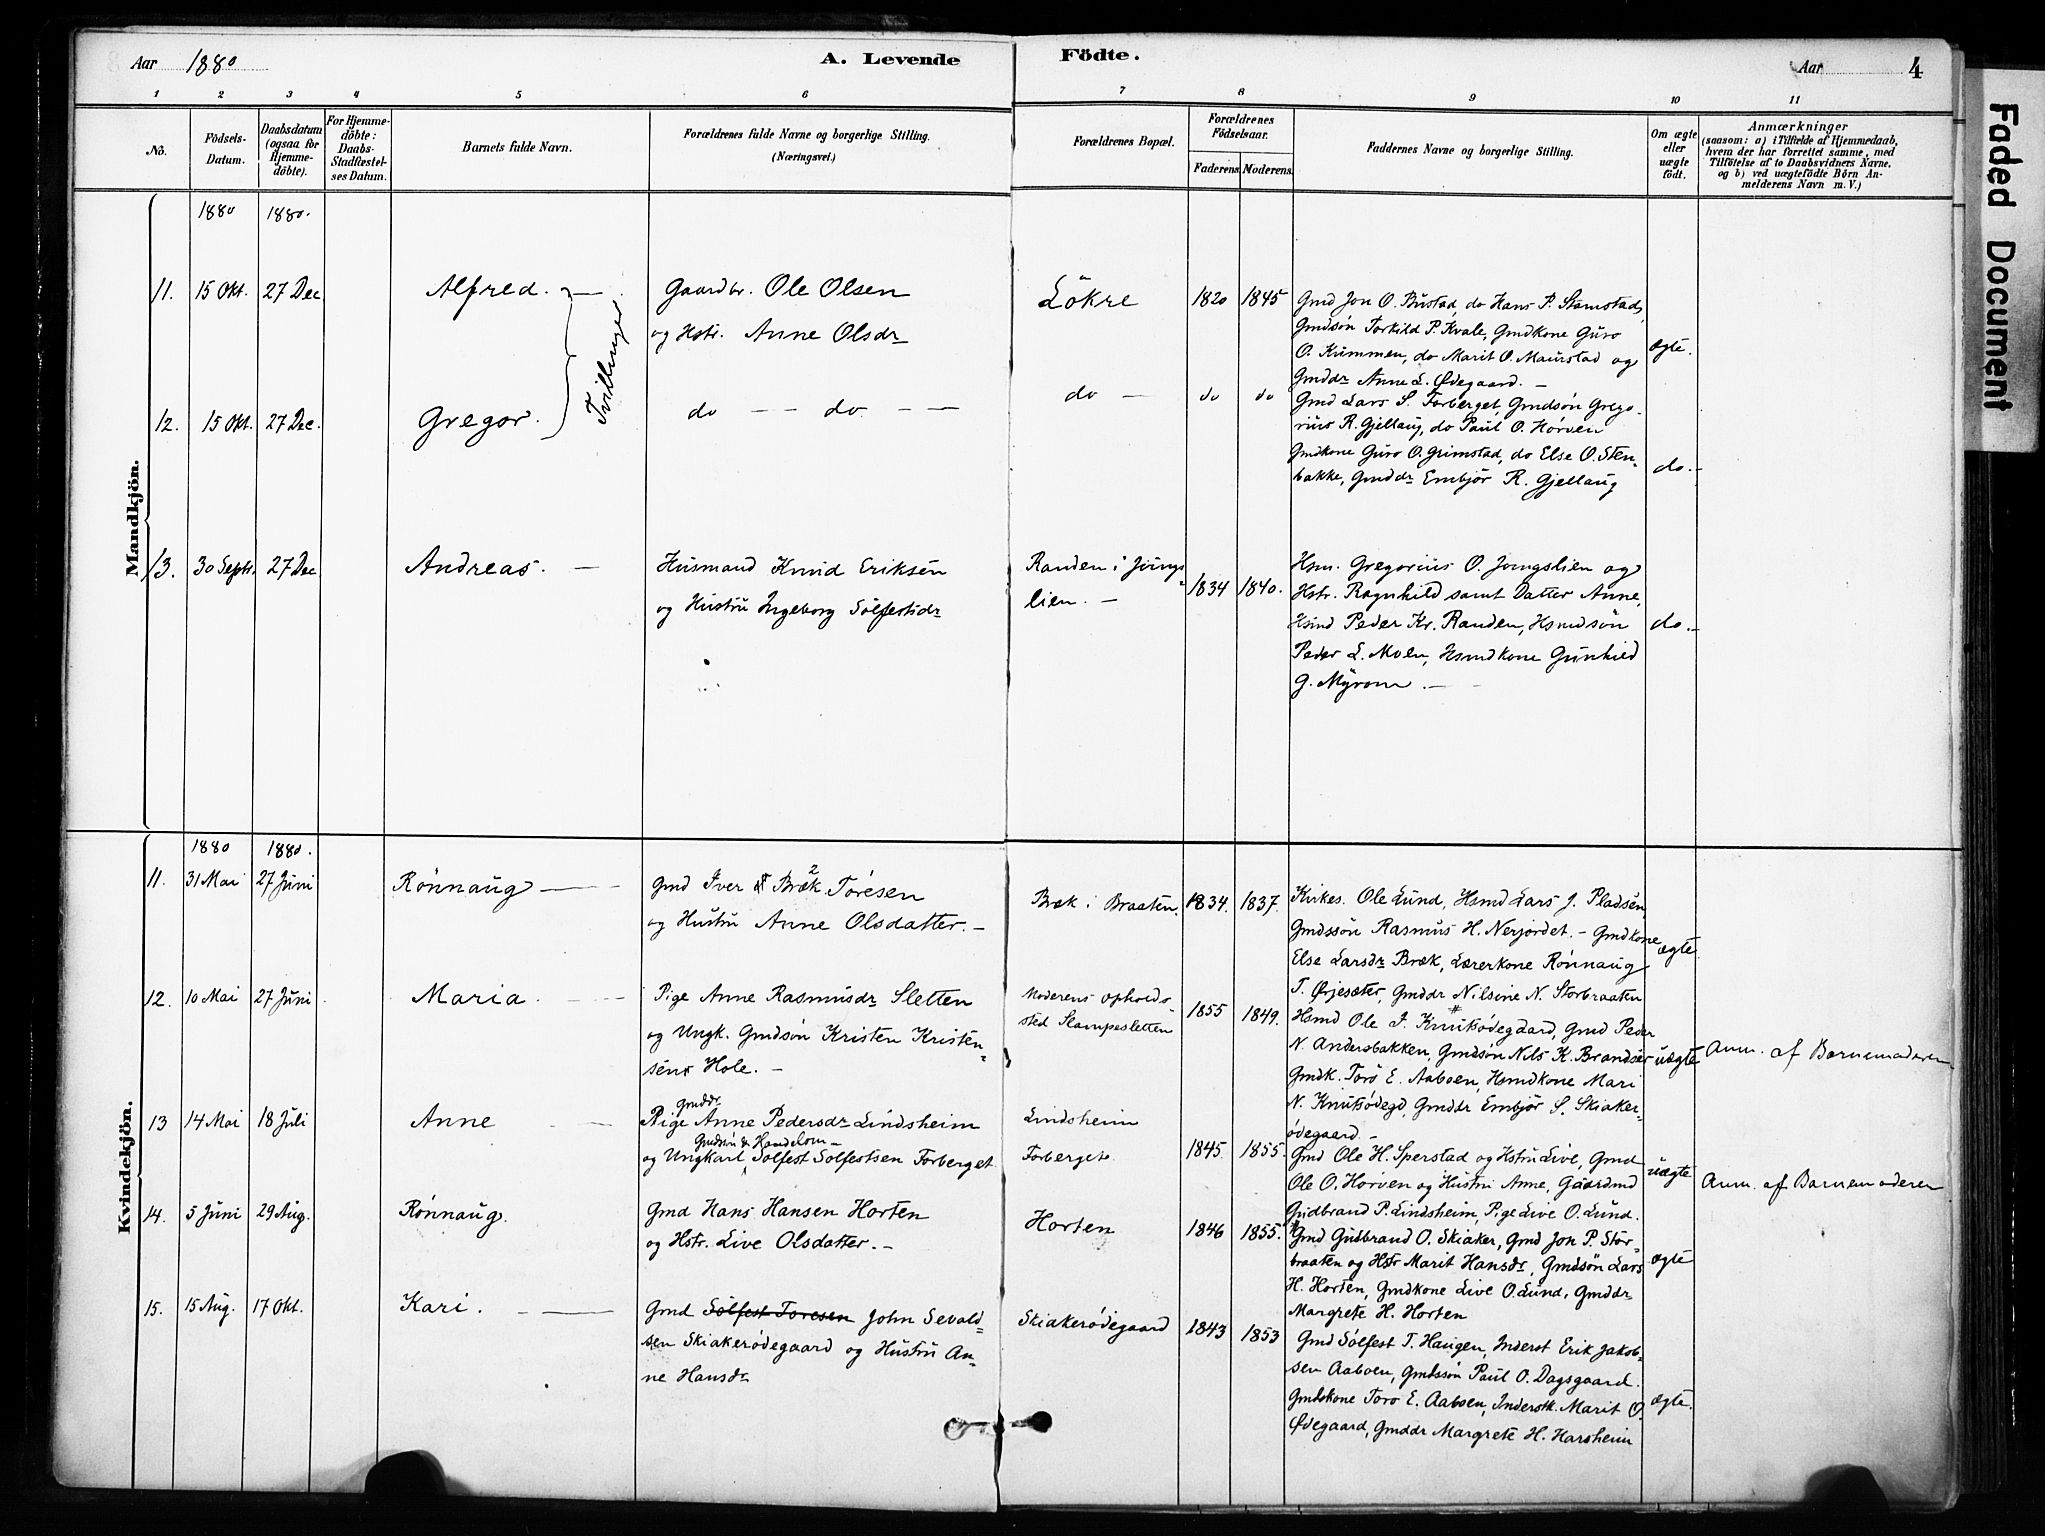 Aar 1880 A. Levende Födte. Aar 4
Faded Document
1 2 3 4 5 6 7 8 9 10 11
No.
Födsels-
Datum.
Daabsdatum
(ogsaa for
Hjemme-
döbte).
For Hjemme-
döbte:
Daabs-
Stadfæstel-
ses Datum.
Barnets fulde Navn.
Forældrenes fulde Navne og borgerlige Stilling.
(Næringsvei.)
Forældrenes Bopæl.
Forældrenes
Födselsaar.
Faderens. Moderens.
Faddernes Navne og borgerlige Stilling.
Om ægte
eller
uægte
födt.
Anmærkninger
(saasom: a) i Tilfælde af Hjemmedaab,
hvem der har forrettet samme, med
Tilföielse af to Daabsvidners Navne,
og b) ved uægtefödte Börn An-
melderens Navn m. V.)
Mandkjön.
1880 1880.
11. 15 Okt. 27 Dec Alfred. —
Tvillinger
Gaardbr. Ole Olsen
og Hstr. Anne Olsdr
Lökre 1820 1845
Gmd Jon O. Bustad, do Hans P. Stamstad,
Gmdsön Torkild P. Kvale, Gmdkone Guro
O. Kummen, do Marit O. Maurstad og
Gmddr Anne L. Ødegaard. —
ægte.
12. 15 Okt. 27 Dec. Gregor.
do — — do — —
do — do do
Gmd Lars S. Forberget, Gmdsön Grego-
rius R. Gjellaug, do Paul O. Horven
Gmdkone Guro O. Grimstad, do Else O. Sten-
bakke, Gmddr Embjör R. Gjellaug
do. —
13. 30 Septr. 27 Dec Andreas. —
Husmand Knud Eriksen
og Hustru Ingeborg Sölfestsdr
Randen i Jöngs-
lien. — 1834 1840.
Hsm. Gregorius O. Jongslien og
Hstr. Ragnhild samt Datter Anne,
Hsmd Peder Kr. Randen, Hsmdsön
Peder L. Moen, Hsmdkone Gunhild
G. Myrom. —
do. —
Kvindekjön.
1880 1880.
11. 31 Mai 27 Juni Rönnaug —
Gmd Iver Bræk Toresen
og Hustru Anne Olsdatter. —
Bræk i Braaten. 1834. 1837.
Kirkes. Ole Lund, Hsmd Lars J. Pladsen
Gmdssön Rasmus H. Nerjordet. — Gmdkone
Else Larsdr Bræk, Lærerkone Rönnaug
T. Ørjesæter, Gmddr Nilsine N. Storbraaten
ægte
12. 10 Mai 27 Juni Maria. —
Pige Anne Rasmusdr Sletten
og Ungk. Gmdsön Kristen Kristen-
sen Hole. —
Moderens opholds-
sted Slampesletten 1855 1849.
Hsmd Ole J. Knutsödegaard, Gmd Peder
N. Andersbakken, Gmdsön Nils K. Brandsær
Gmdk. Torö E. Aaboen, Hsmdkone Mari
N. Knutsödegd, Gmddr Embjör S. Skiaker-
ödegaard. —
uægte Anm. af Barnemoderen
13 14 Mai 18 Juli Anne —
gmddr.
Pige Anne Pedersdr Lindsheim
og Ungkarl Solfest Solfestsen Forberget
Lindsheim
Forberget. 1845. 1855.
Gmd Ole H. Sperstad og Hstru Live, Gmd
Ole O. Horven og Hustru Anne, Gaardmd
Gudbrand P. Lindsheim, Pige Live O. Lund.
uægte Anm. af Barnemoderen
14. 5 Juni 29 Aug. Rönnaug.
Gmd Hans Hansen Horten
og Hstr. Live Olsdatter. —
Horten 1846 1855.
Gmd Gudbrand O. Skiaker, Gmd Jon P. Stor-
braaten og Hstr Marit Hansdr, Gmdsön Lars
H. Horten, Gmdkone Live O. Lund, Gmddr
Margrete H. Horten
ægte
15. 15 Aug. 17 Okt. Kari. —
Gmd Sölfest Toresen John Sevald-
sen Skiakerødegaard og Hustru An-
ne Hansdr
Skiakerødegaard 1843 1853
Gmd Sölfest T. Haugen, Inderst Erik Jakob-
sen Aaboen, Gmdssön Paul O. Dagsgaard.
Gmdskone Torö E. Aaboen, Inderstk. Marit O.
Ødegaard, Gmddr Margrete H. Harsheim
ægte.